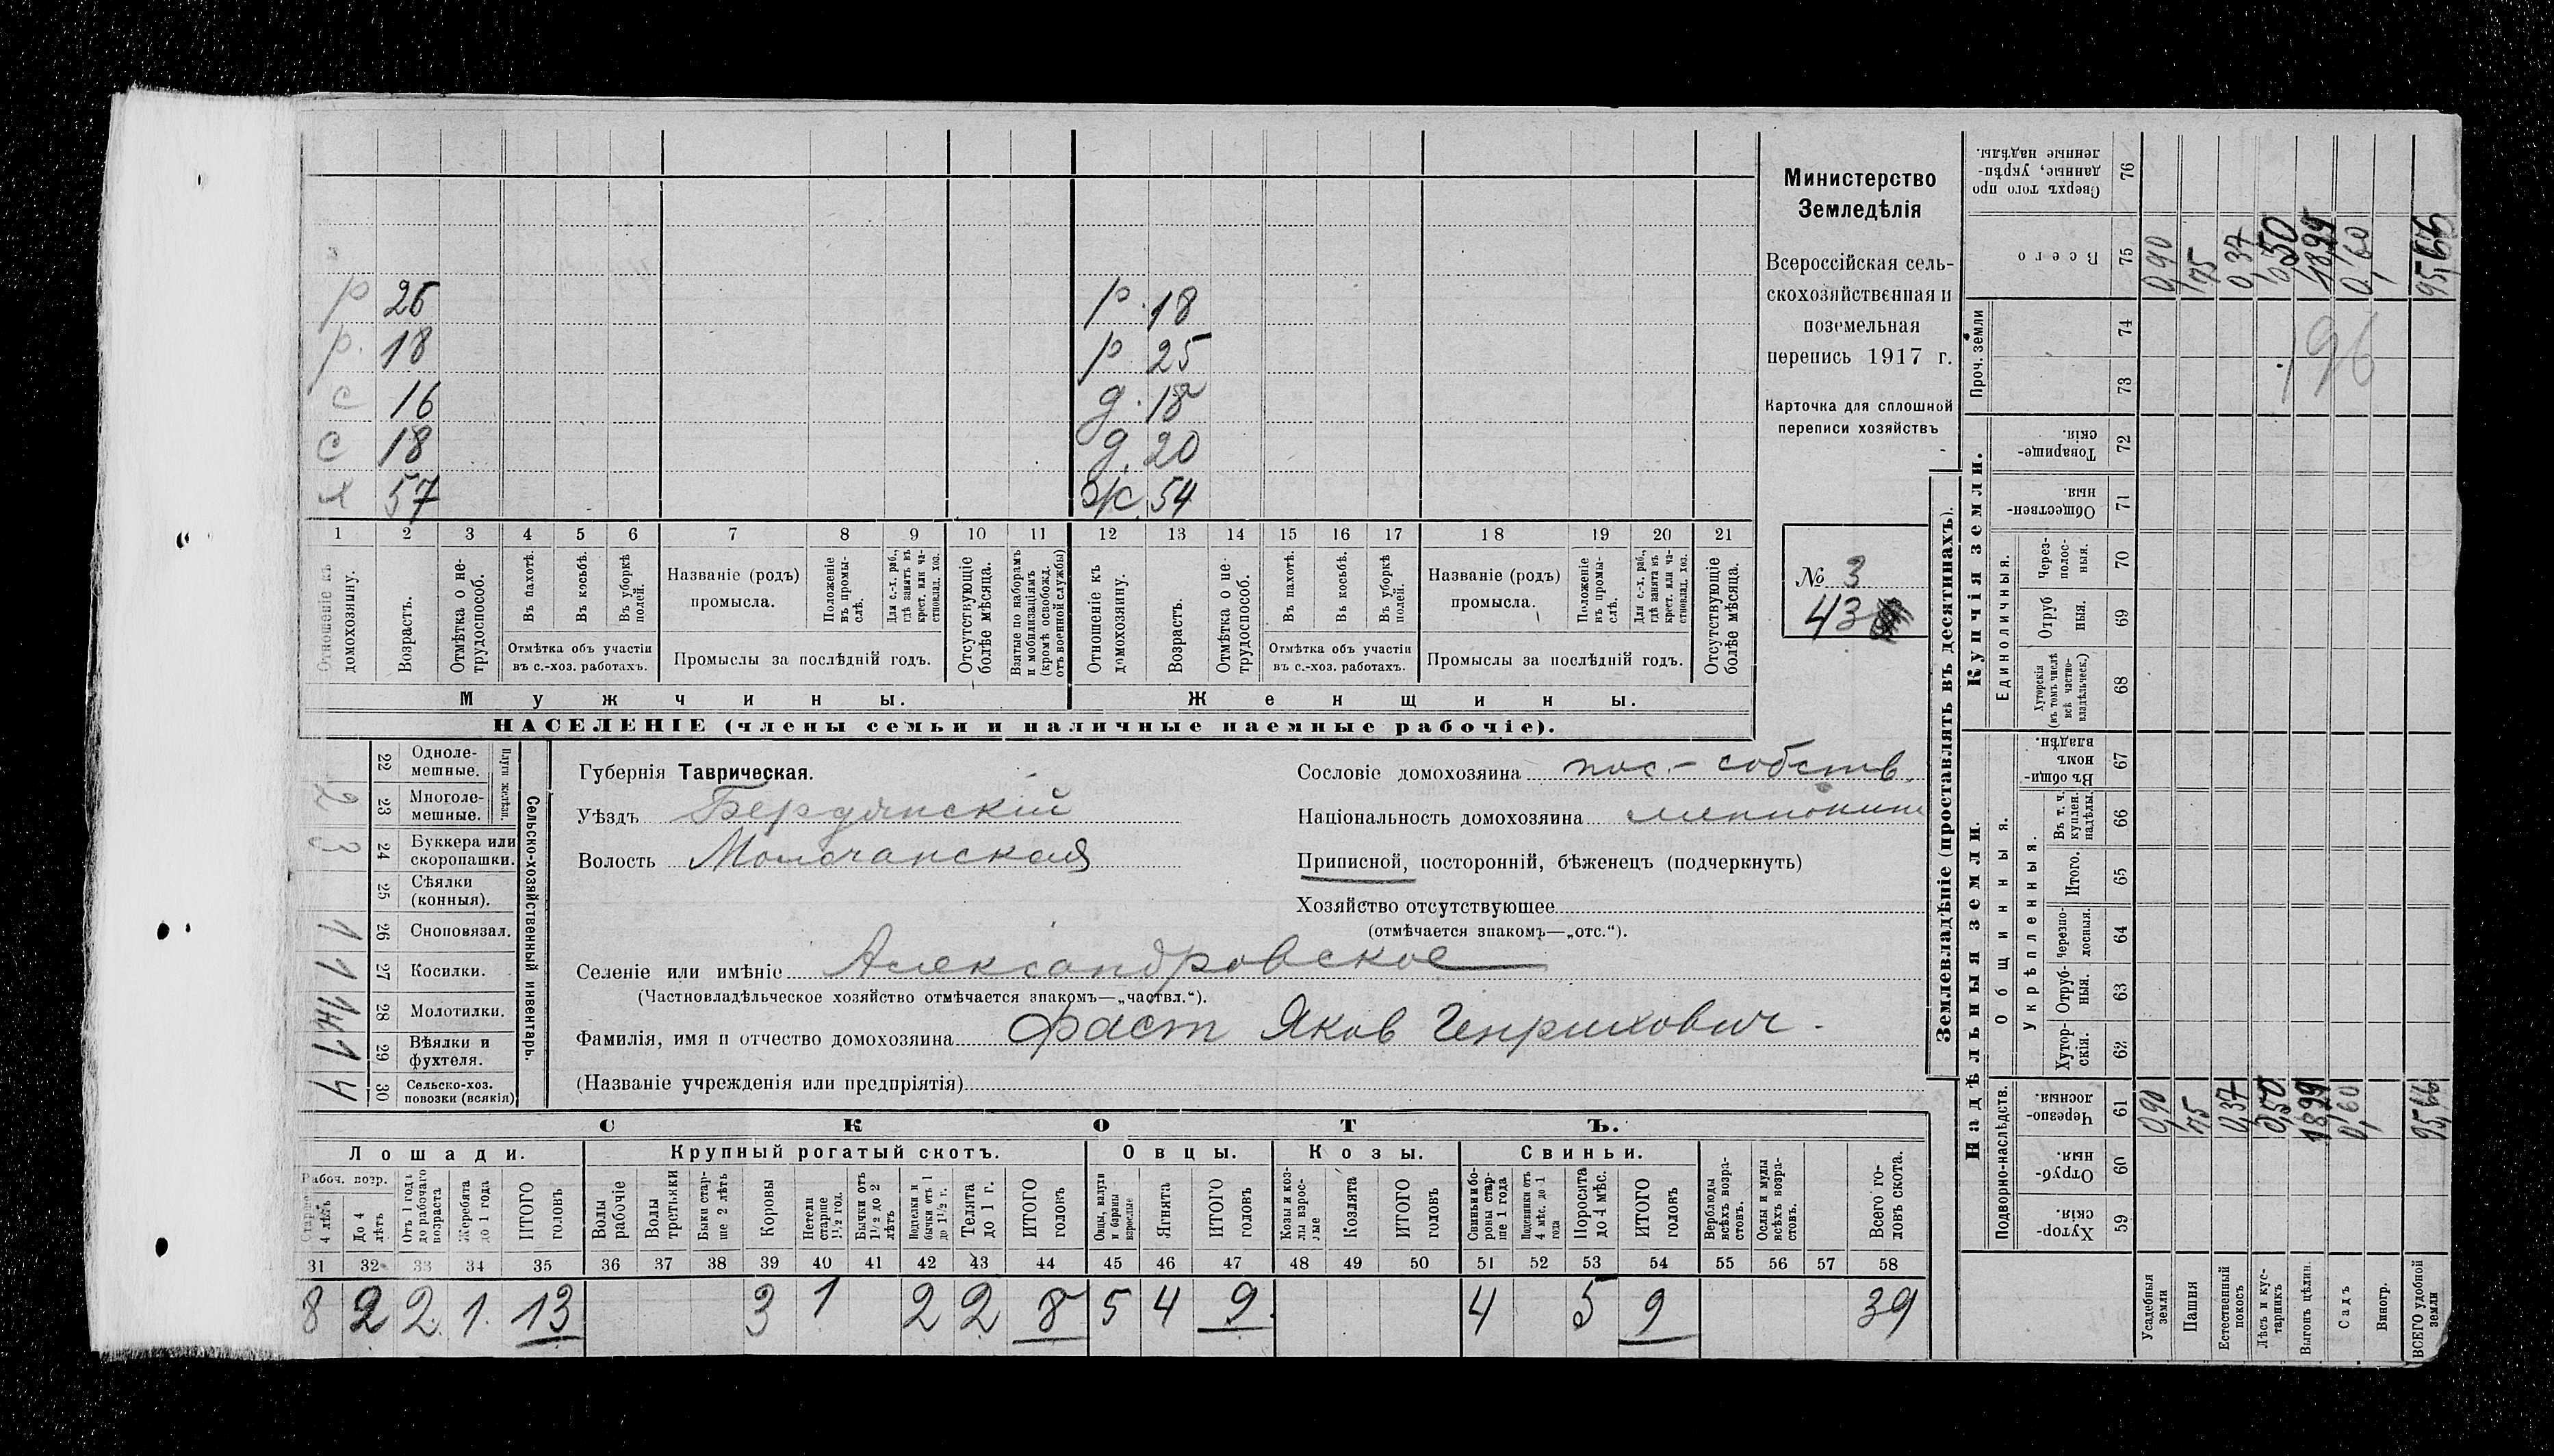 р 26 р. 18
р. 18 р 25
с 16 д. 18
с 18 д. 20
х 57 ж. 54
1 2 3 4 5 6 7 8 9 10 11 12 13 14 15 16 17 18 19 20 21
Отношеніе къ домохозяину.
Возрастъ.
Отмѣтка о не-трудоспособ.
Въ пахотѣ.
Въ косьбѣ.
Въ уборкѣ полей.
Отмѣтка объ участіи въ с.-хоз. работахъ.
Названіе (родъ) промысла.
Положеніе въ промы-слѣ.
Для с.-х. раб., гдѣ занятъ въ крест. или ча-стновлад. хоз.
Промыслы за послѣдній годъ.
Отсутствующіе болѣе мѣсяца.
Взятые по наборамъ и мобилизаціямъ (кромѣ освобожд. отъ военной службы)
Отношеніе къ домохозяину.
Возрастъ.
Отмѣтка о не-трудоспособ.
Въ пахотѣ.
Въ косьбѣ.
Въ уборкѣ полей.
Отмѣтка объ участіи въ с.-хоз. работахъ.
Названіе (родъ) промысла.
Положеніе въ промы-слѣ.
Для с.-х. раб., гдѣ занята въ крест. или ча-стновлад. хоз.
Промыслы за послѣдній годъ.
Отсутствующіе болѣе мѣсяца.
Мужчины. Женщины.
НАСЕЛЕНІЕ (члены семьи и наличные наемные рабочіе).
Министерство
Земледѣлія
Всероссійская сель-
скохозяйственная и
поземельная
перепись 1917 г.
Карточка для сплошной
переписи хозяйствъ
№ 3
43
Сельско-хозяйственный инвентарь.
Плуги желѣзн.
22 Одноле-мешные.
2 23 Многоле-мешные.
3 24 Буккера или скоропашки.
25 Сѣялки (конныя).
1 26 Сноповязал.
1 27 Косилки.
28 Молотилки.
1 29 Вѣялки и фухтеля.
4 30 Сельско-хоз. повозки (всякія)
Губернія Таврическая.
Уѣздъ Бердянскій
Волость Молочанская
Сословіе домохозяина пос.-собств.
Національность домохозяина меннонит
Приписной, посторонній, бѣженецъ (подчеркнуть)
Хозяйство отсутствующее
(отмѣчается знакомъ—„отс.“).
Селеніе или имѣніе Александровское
(Частновладѣльческое хозяйство отмѣчается знакомъ—„частвл.“).
Фамилія, имя и отчество домохозяина Фаст Яков Генрихович.
(Названіе учрежденія или предпріятія)
СКОТЪ.
Лошади. Крупный рогатый скотъ. Овцы. Козы. Свиньи.
Рабоч. возр.
Старше 4 лѣтъ
До 4 лѣтъ
Отъ 1 года до рабочаго возраста
Жеребята до 1 года
ИТОГО головъ
Волы рабочіе
Волы третьяки
Быки стар-ше 2 лѣтъ
Коровы
Нетели старше 1½ год.
Бычки отъ 1½ до 2 лѣтъ
Подтелки и бычки отъ 1 до 1½ г.
Телята до 1 г.
ИТОГО головъ
Овцы, валухи и бараны взрослые
Ягнята
ИТОГО головъ
Козы и коз-лы взрос-лые
Козлята
ИТОГО головъ
Свиньи и бо-ровы стар-ше 1 года
Подсвинки отъ 4 мѣс. до 1 года
Поросята до 4 мѣс.
ИТОГО головъ
Верблюды всѣхъ возра-стовъ.
Ослы и мулы всѣхъ возра-стовъ.
Всего го-ловъ скота.
31 32 33 34 35 36 37 38 39 40 41 42 43 44 45 46 47 48 49 50 51 52 53 54 55 56 57 58
8 2 2 1 13 3 1 2 2 8 5 4 9 4 5 9 39
Землевладѣніе (проставлять въ десятинахъ).
Надѣльныя земли. Купчія земли. Проч. земли
Подворно-наслѣдств.
Общинныя.
Укрѣпленныя.
Единоличныя.
Хутор-скія. 59
Отруб-ныя. 60
Черезпо-лосныя. 61
Хутор-скія. 62
Отруб-ныя. 63
черезпо-лосныя. 64
Итого. 65
Въ т. ч. куплен. надѣлы. 66
Въ общи-номъ владѣн. 67
Хуторскія (въ томъ числѣ всѣ частно-владѣльческ.) 68
Отруб ныя. 69
Через-полос-ныя. 70
Обществен-ныя. 71
Товарище-скія. 72
73
74
Всего 75
Сверхъ того про данные, укрѣп-ленные надѣлы. 76
Усадебныя земли 0,90 0,90
Пашня 75 75
Естественный покосъ 0,37 0,37
Лѣсъ и кус-тарникъ 0,50 0,50
Выгонъ цѣлин. 18,29
Садъ 0,60 0,60
Виногр.
ВСЕГО удобной земли 95,66 95,66
196